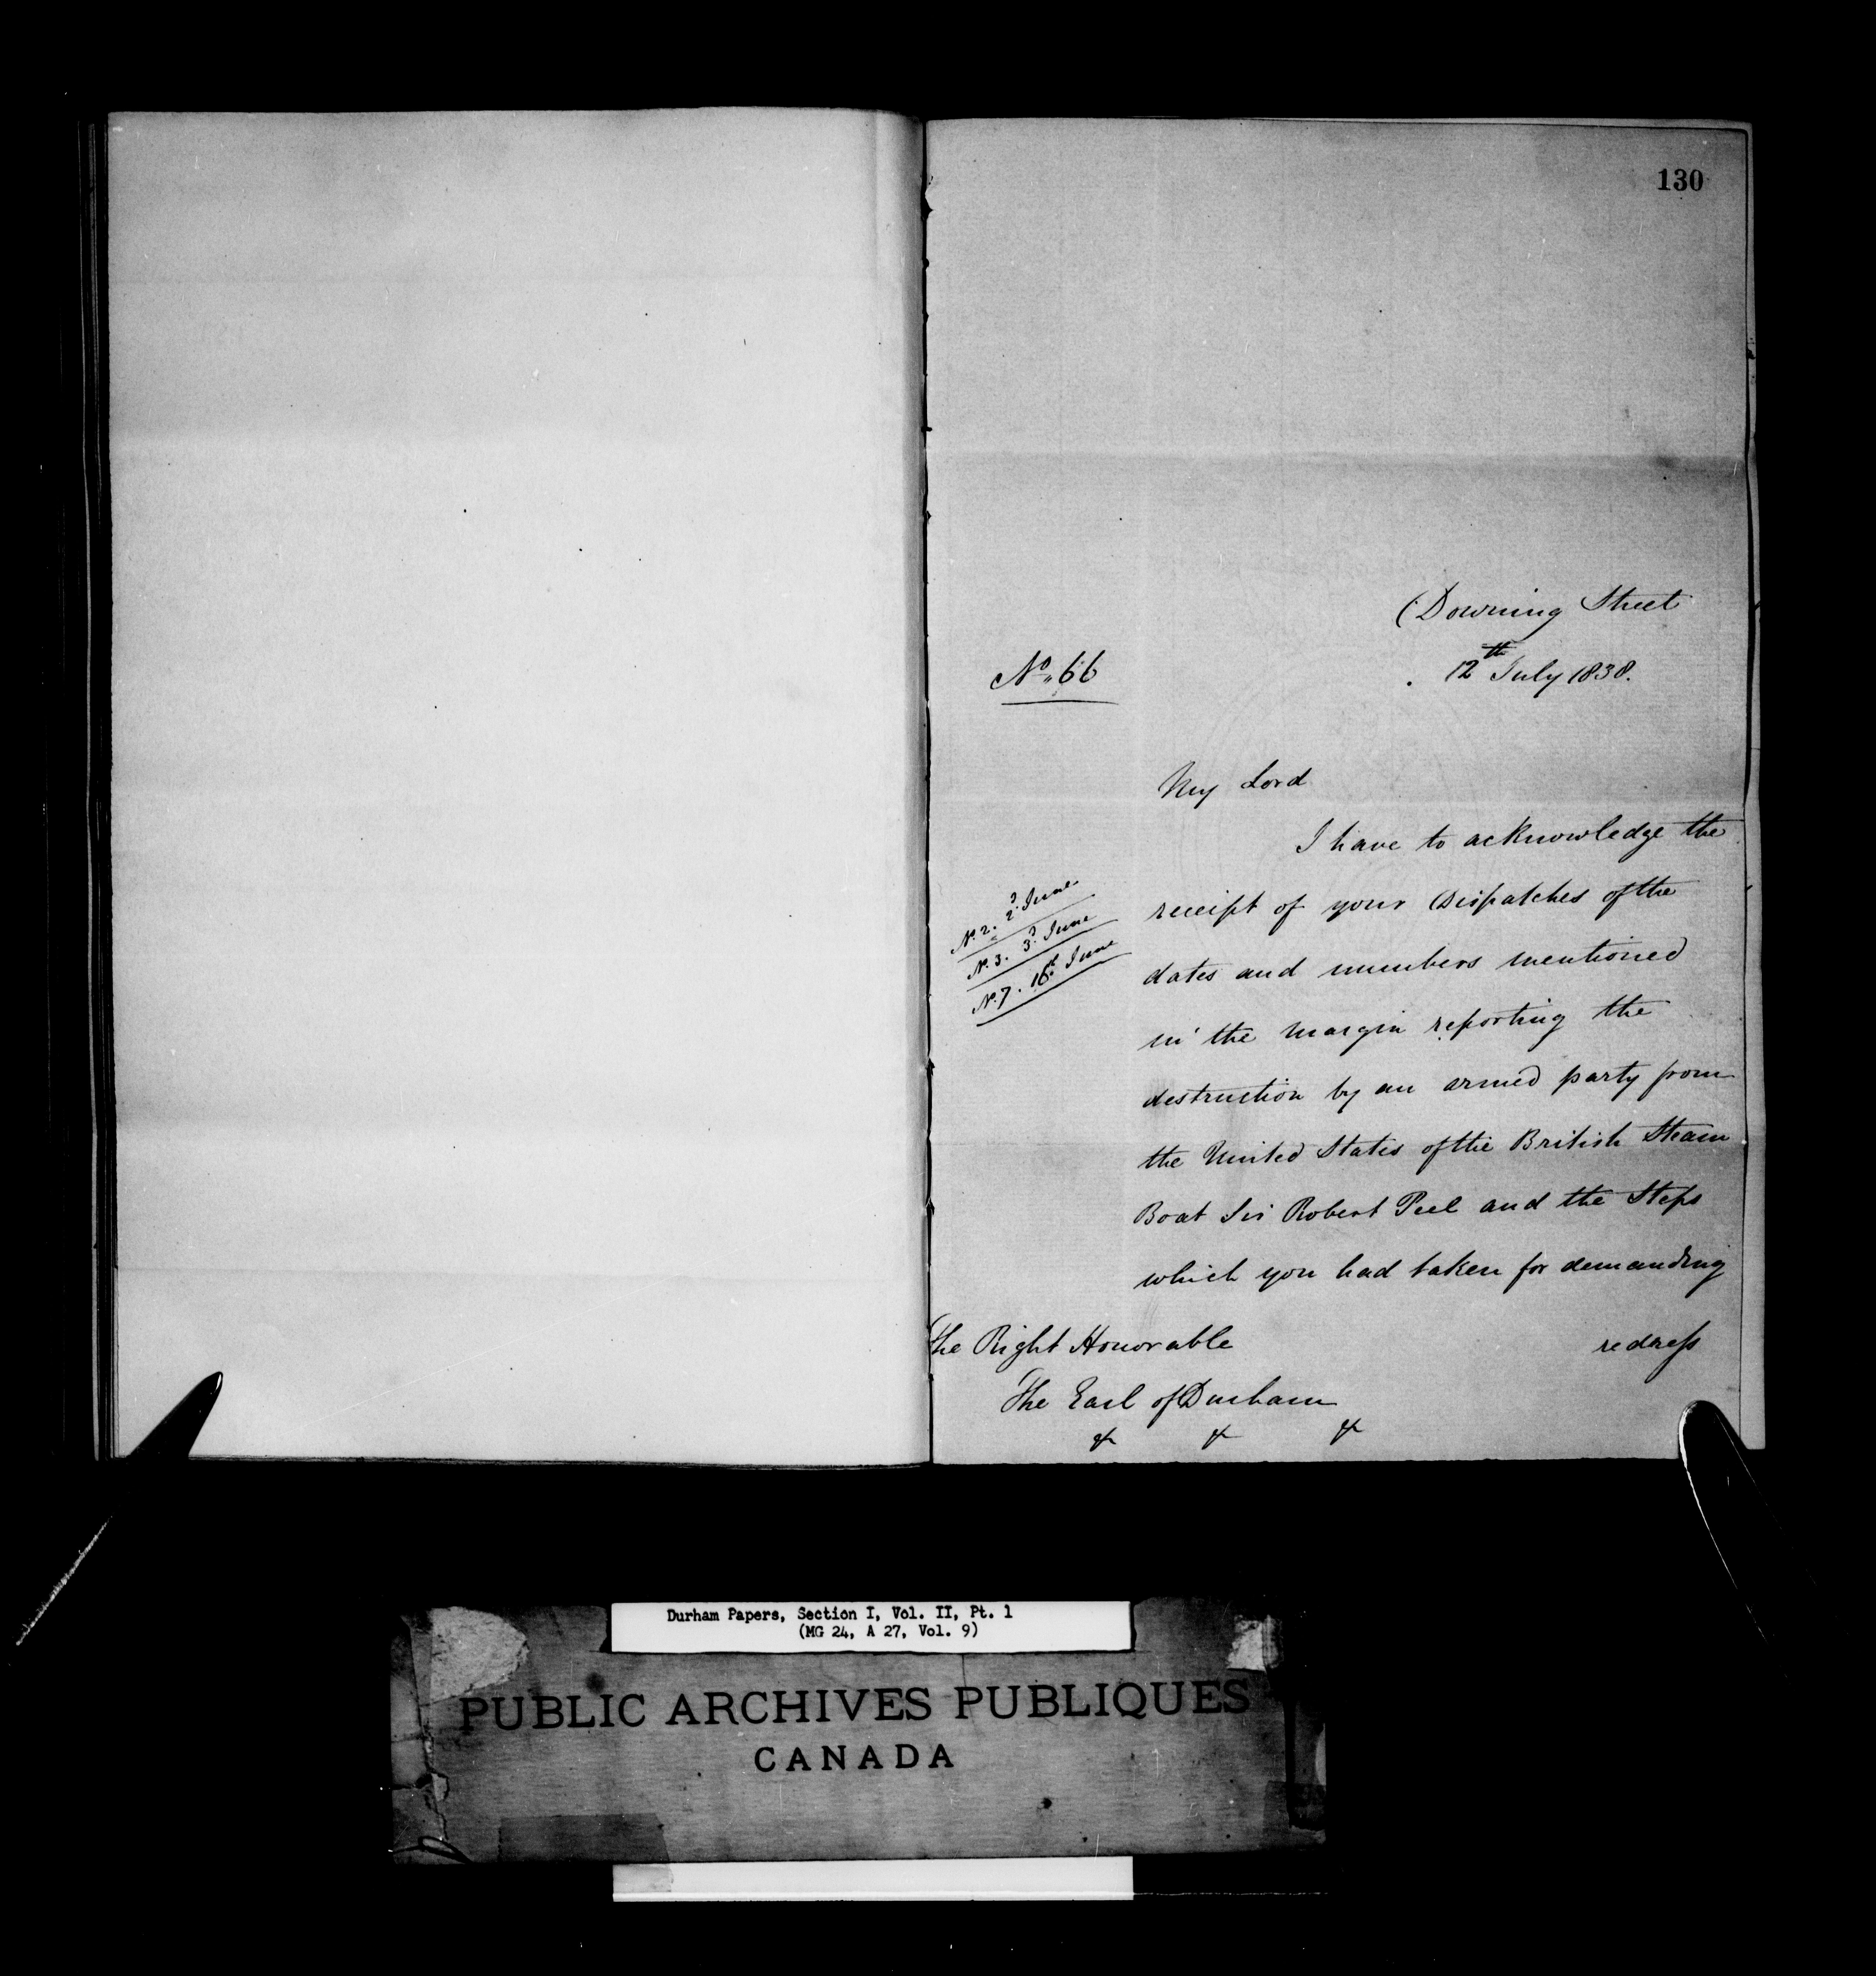 130
Downing Street
12th July 1838.
No. 66
My Lord
I have to acknowledge the
receipt of your Dispatches of the
dates and numbers mentioned
in the margin reporting the
destruction by an armed party from
the United States of the British Steam
Boat Sir Robert Peel and the Steps
which you had taken for demanding
redress
No. 2. 2d. June.
No. 3. 3d. June
No. 7. 16th. June
The Right Honorable
The Earl of Durham
&c &c &c
Durham Papers, Section I, Vol. II, Pt. 1
(MG 24, A 27, Vol. 9)
PUBLIC ARCHIVES PUBLIQUES
CANADA